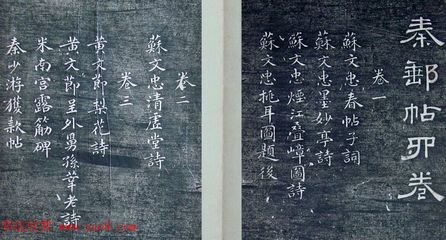 秦郵帖四卷
卷一
蘇文忠春帖子詞
蘇文忠墨妙亭詩
蘇文忠煙江疊嶂圖詩
蘇文忠挑耳圖題後
卷二
蘇文忠清虛堂詩
卷三
黃文節梨花詩
黃文節呈外舅孫莘老詩
米南宮露筋碑
秦少游獲款帖